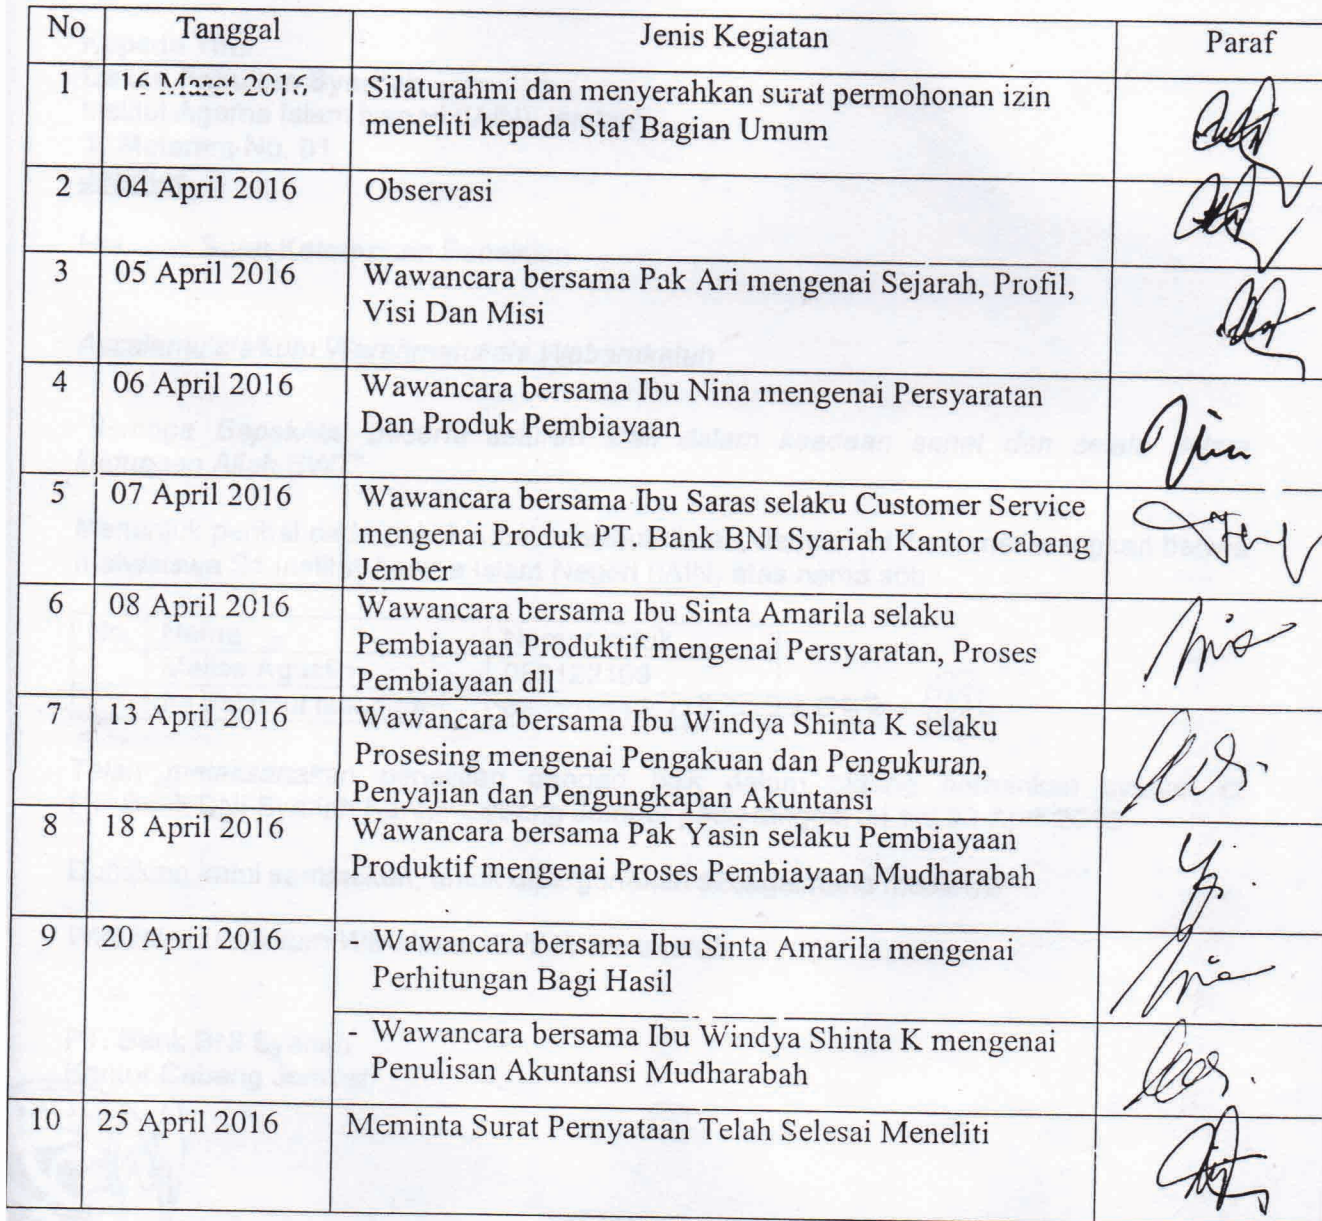 No Tanggal Jenis Kegiatan Paraf
1 16 Maret 2016 Silaturahmi dan menyerahkan surat permohonan izin
meneliti kepada Staf Bagian Umum
2 04 April 2016 Observasi
3 05 April 2016 Wawancara bersama Pak Ari mengenai Sejarah, Profil,
Visi Dan Misi
4 06 April 2016 Wawancara bersama Ibu Nina mengenai Persyaratan
Dan Produk Pembiayaan
5 07 April 2016 Wawancara bersama Ibu Saras selaku Customer Service
mengenai Produk PT. Bank BNI Syariah Kantor Cabang
Jember
6 08 April 2016 Wawancara bersama Ibu Sinta Amarila selaku
Pembiayaan Produktif mengenai Persyaratan, Proses
Pembiayaan dll.
7 13 April 2016 Wawancara bersama Ibu Windya Shinta K selaku
Prosesing mengenai Pengakuan dan Pengukuran,
Penyajian dan Pengungkapan Akuntansi
8 18 April 2016 Wawancara bersama Pak Yasin selaku Pembiayaan
Produktif mengenai Proses Pembiayaan Mudharabah
9 20 April 2016 - Wawancara bersama Ibu Sinta Amarila mengenai
Perhitungan Bagi Hasil
- Wawancara bersama Ibu Windya Shinta K mengenai
Penulisan Akuntansi Mudharabah
10 25 April 2016 Meminta Surat Pernyataan Telah Selesai Meneliti